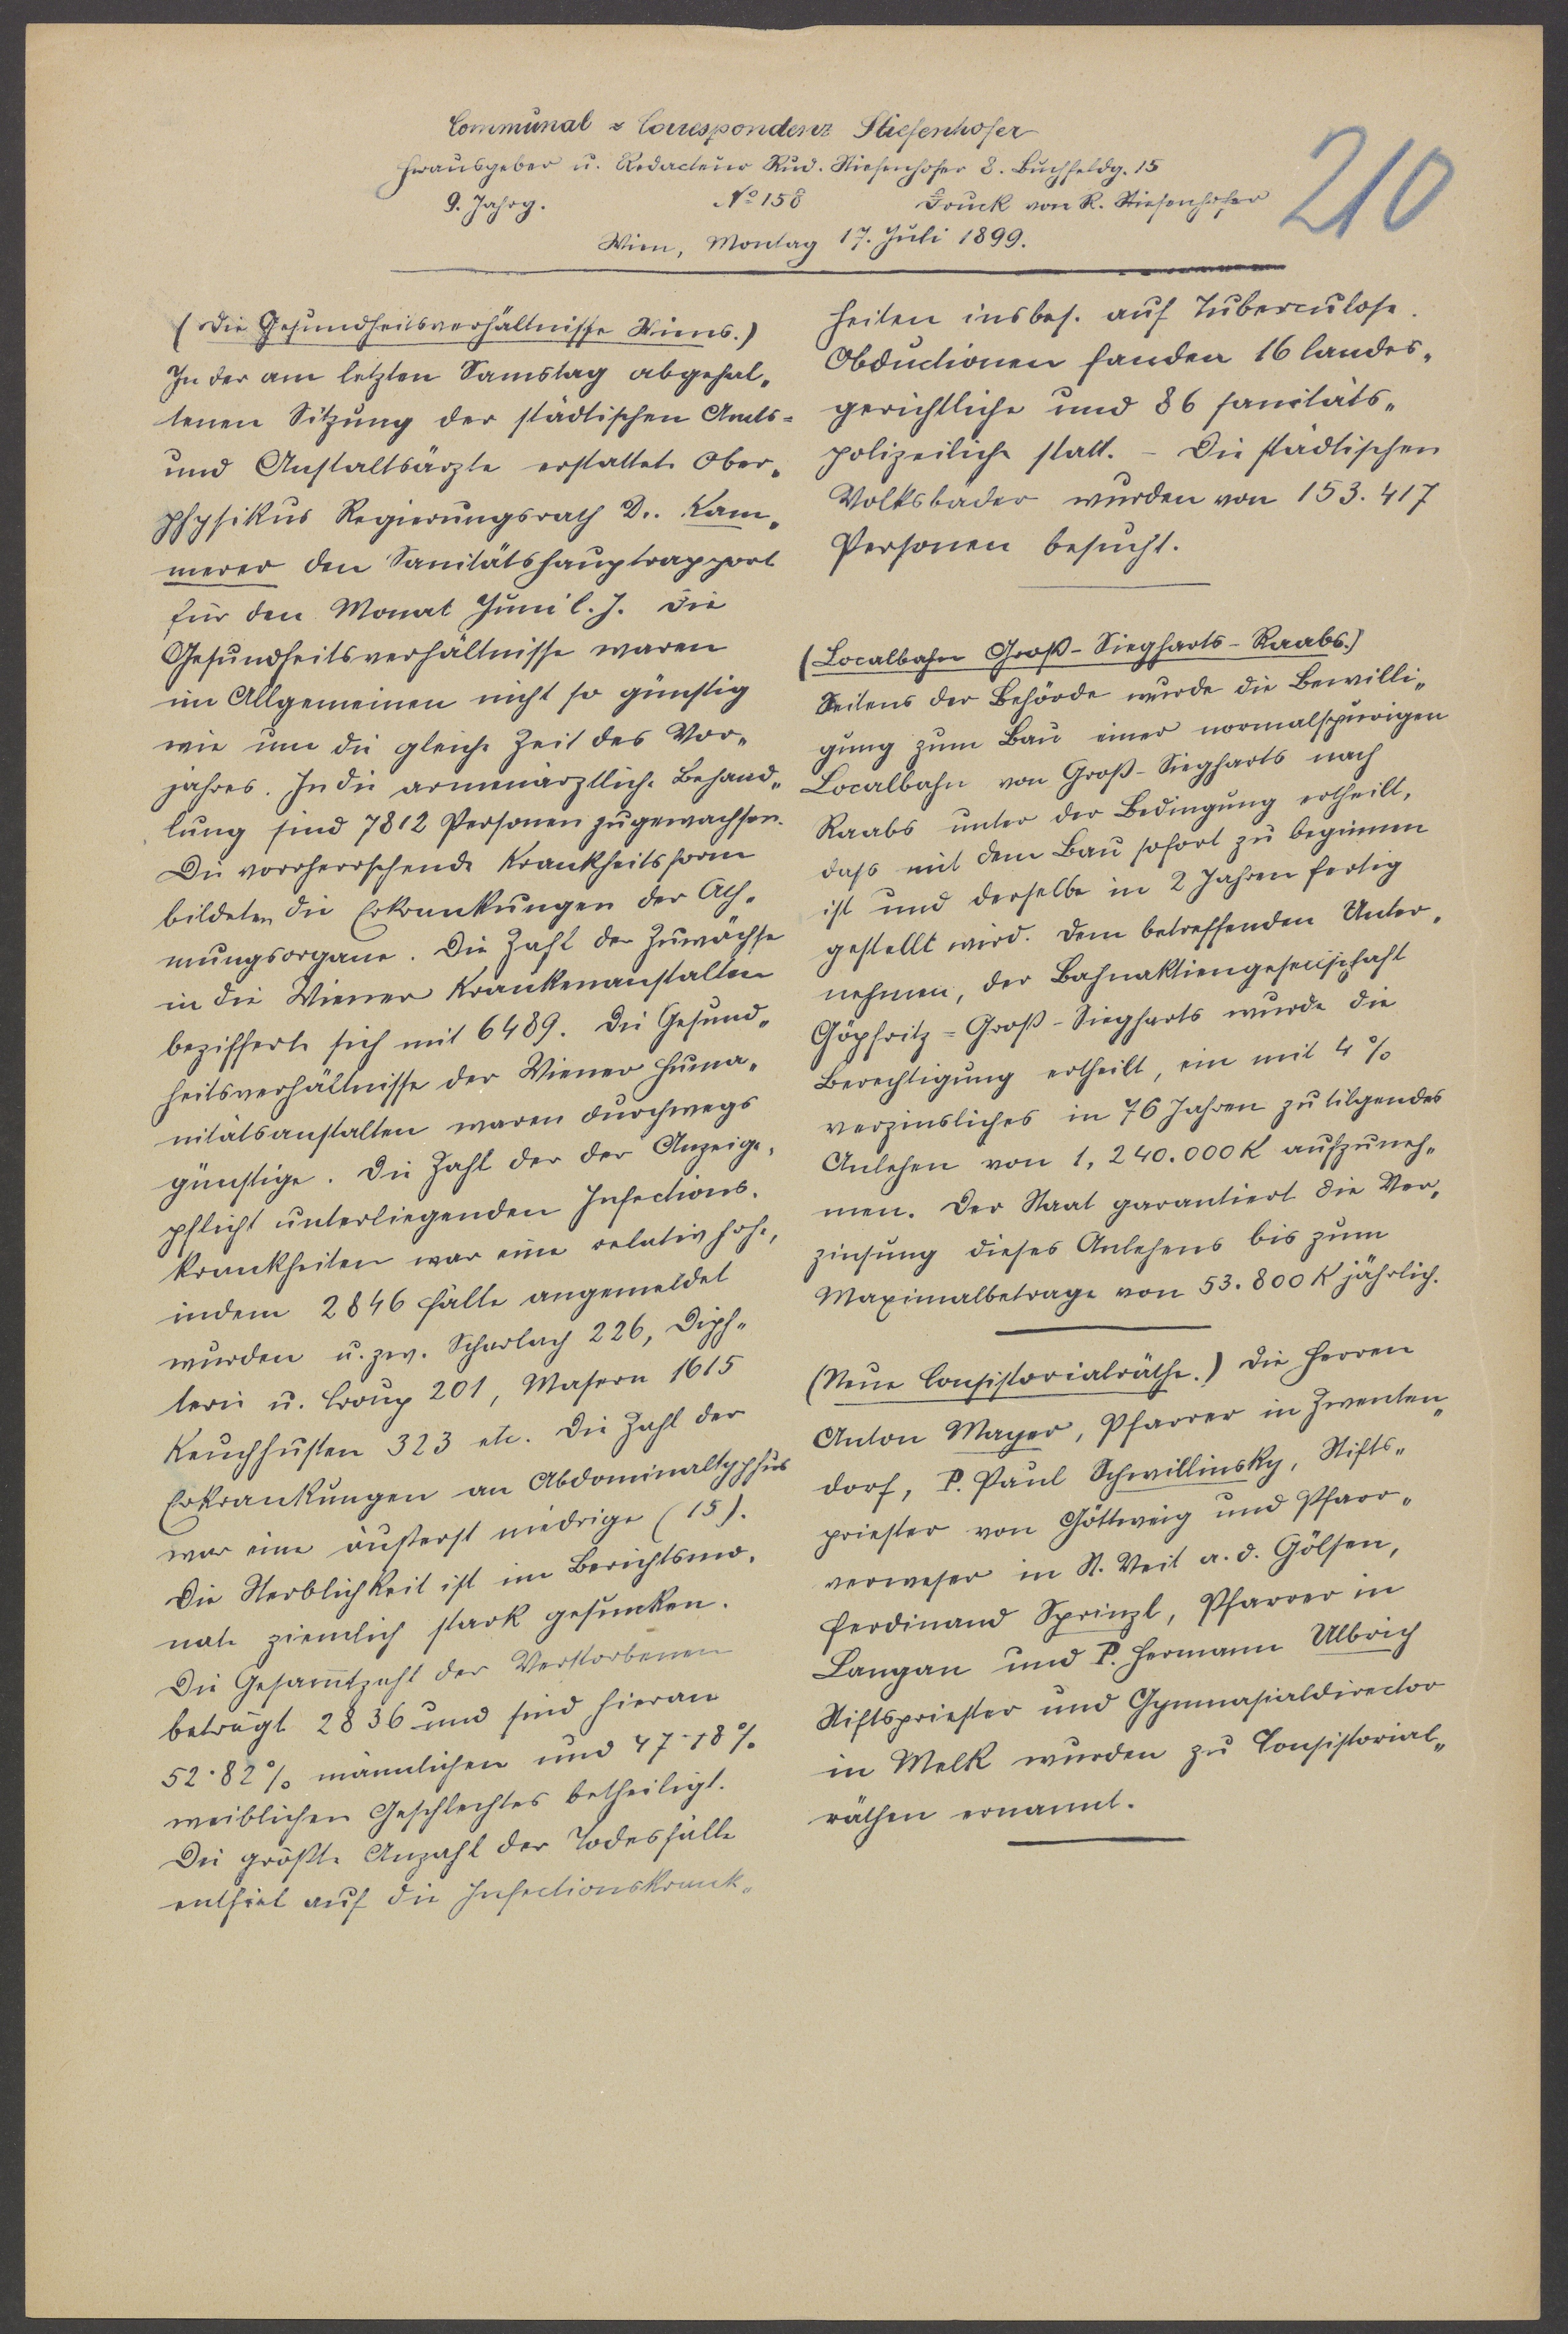 Communal = Correspondenz Stiefenhofer
Herausgeber u. Redacteur Rud. Stiefenhofer 8. Buchfeldg. 15
9. Jahrg. No 158 Druck von R. Stiefenhofer
210
Wien, Montag 17. Juli 1899.
(Die Gesundheitsverhältnisse Wiens.)
In der am letzten Samstag abgehal-
tenen Sitzung der städtischen Amts-
und Anstaltsärzte erstattete Ober-
physikus Regierungsrath Dr. Kam-
merer den Sanitätshauptrapport
für den Monat Juni l. J. Die
Gesundheitsverhältnisse waren
im Allgemeinen nicht so günstig
wie um die gleiche Zeit des Vor-
jahres. In die armenärztliche Behand-
lung sind 7812 Personen zugewachsen.
Die vorrherrschende Krankheitsform
bildeten die Erkrankungen der Ath-
mungsorgane. Die Zahl der Zuwächse
in die Wiener Krankenanstalten
bezifferte sich mit 6489. Die Gesund-
heitsverhältnisse der Wiener Huma-
nitätsanstalten waren durchwegs
günstige. Die Zahl der der Anzeige-
pflicht unterliegenden Infections-
krankheiten war eine relativ hohe,
indem 2846 Fälle angemeldet
wurden u. zw. Scharlach 226, Diph-
terie u. Croup 201, Masern 1615
Keuchhusten 323 etc. Die Zahl der
Erkrankungen an Abdominaltyphus
war eine äußerst niedrige (15).
Die Sterblichkeit ist im Berichtsmo-
nate ziemlich stark gesunken.
Die Gesam̅tzahl der Verstorbenen
beträgt 2836 und sind hieran
52·82% männlichen und 47·18%
weiblichen Geschlechtes betheiligt.
Die größte Anzahl der Todesfälle
entfiel auf die Infectionskrank-
heiten insbes. auf Tuberculose.
Obductionen fanden 16 landes-
gerichtliche und 86 sanitäts-
polizeiliche statt. – Die städtischen
Volksbäder wurden von 153.417
Personen besucht.
(Localbahn Groß-Siegharts-Raabs.)
Seitens der Behörde wurde die Bewilli-
gung zum Bau einer normalspurigen
Localbahn von Groß-Siegharts nach
Raabs unter der Bedingung ertheilt,
dass mit dem Bau sofort zu beginnen
ist und derselbe in 2 Jahren fertig
gestellt wird. Dem betreffenden Unter-
nehmen, der Bahnaktiengesellschaft
Göpfritz = Groß-Siegharts wurde die
Berechtigung ertheilt, ein mit 4%
verzinsliches in 76 Jahren zu tilgendes
Anlehen von 1,240.000 K aufzuneh-
men. Der Staat garantiert die Ver-
zinsung dieses Anlehens bis zum
Maximalbetrage von 53.800 K jährlich.
(Neue Consistorialräthe.) Die Herren
Anton Mayer, Pfarrer in Zwenten-
dorf, P. Paul Schwillinsky, Stifts-
priester von Göttweig und Pfarr-
verweser in St. Veit a. d. Gölsen,
Ferdinand Sprinzl, Pfarrer in
Langau und P. Hermann Ulbrich
Stiftspriester und Gymnasialdirector
in Melk wurden zu Consistorial-
räthen ernannt.